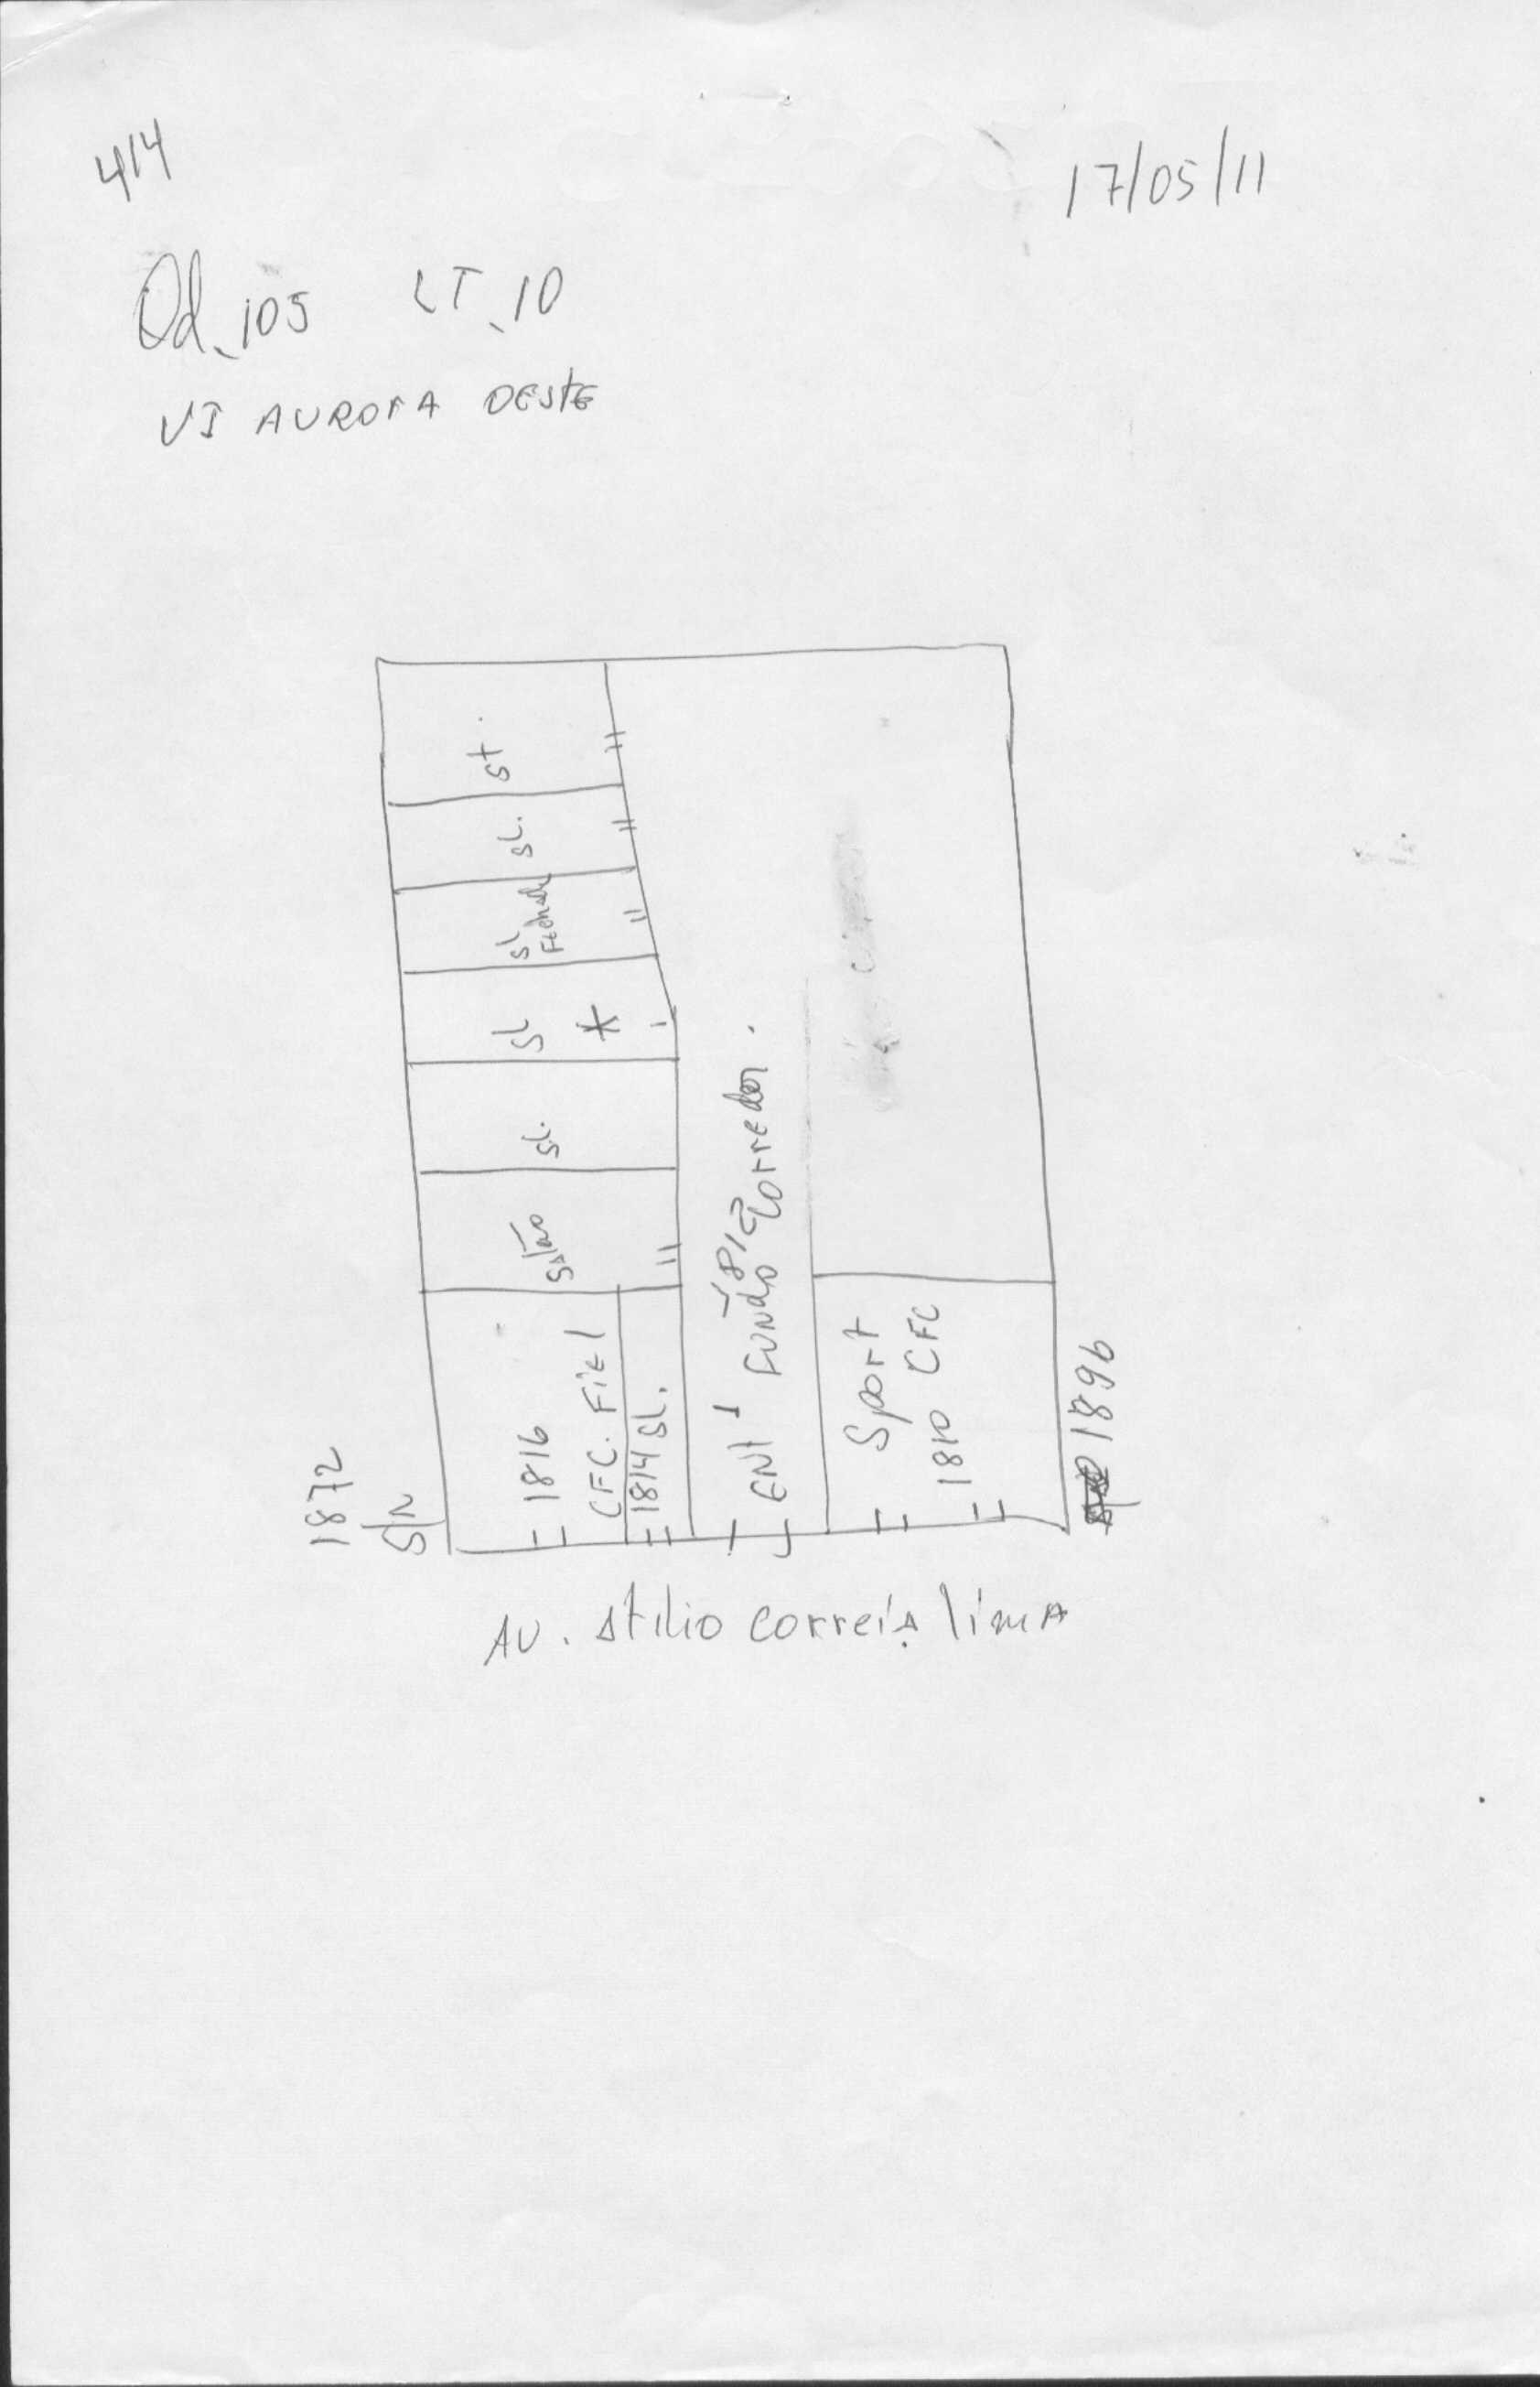 414
17/05/11
Qd. 105 LT. 10
VI AURORA OESTE
st.
sL.
sL
Fechada
sL
*
sL.
salão
1816
CFC. Fiel
1814 sL.
ENT 1 Fundo Corredor.
Sport
1810 CFC
1872
S/N
1896
AV. Atilio correia lima